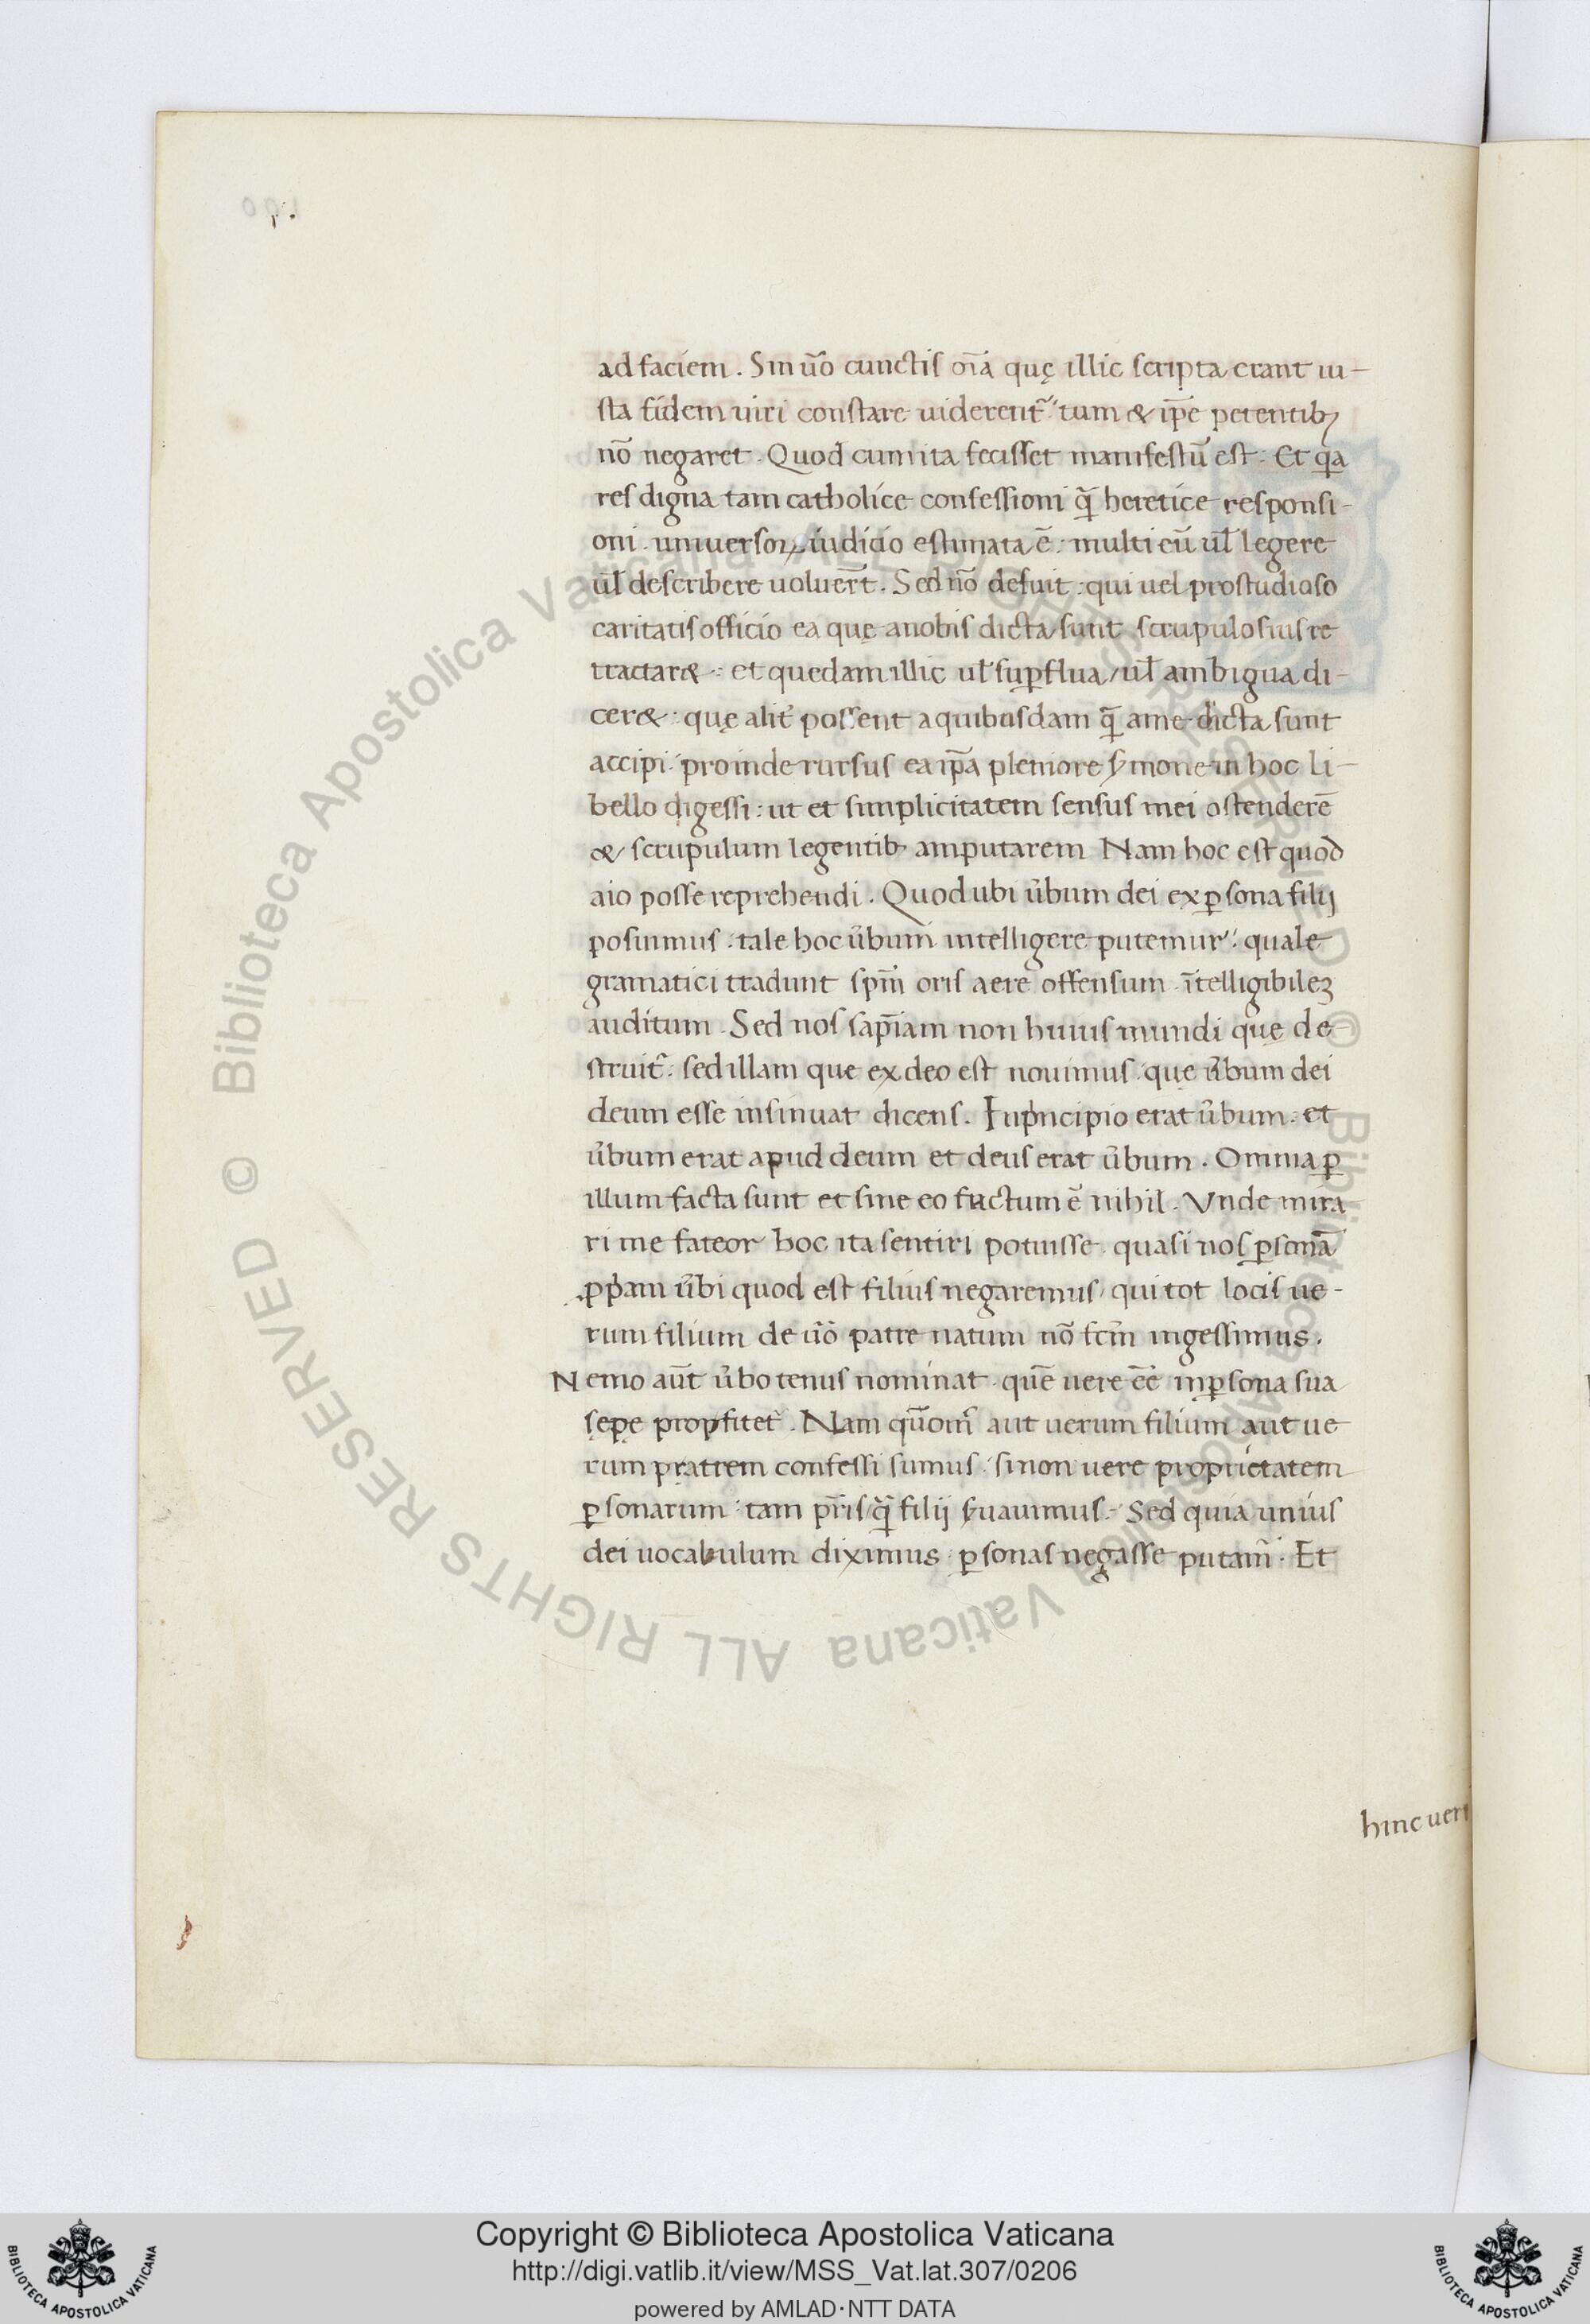 ad faciem . Sin ũo cunctis oĩa quę illic scripta erant iu-
sta fidem uiri constare uiderent̃ : tum & ip̃e petentibꝫ
nõ negaret . Quod cum ita fecisset manifestũ est . Et q̃a
res digna tam catholice confessioni q̃ heretice responsi-
oni . uniuersoꝝ iudicio estimata ẽ : multi eũ ul̃ legere
ul̃ describere uoluer̃t . Sed nõ defuit : qui uel pro studioso
caritatis officio ea quę a nobis dicta sunt scrupulosius re
tractar& : et quedam illic ul̃ suꝑflua / ul̃ ambigua di-
cer& : quę alit̃ possent a quibusdam q̃ a me dicta sunt
accipi : proinde rursus ea ip̃a pleniore s̃mone in hoc li-
bello digessi : ut et simplicitatem sensus mei ostenderẽ
& scrupulum legentibꝫ amputarem Nam hoc est quod
aio posse reprehendi . Quod ubi ũbum dei ex ꝑsona filij
posuimus : tale hoc ũbum intelligere putemur : quale
gramatici tradunt sp̃m oris aere offensum . ĩtelligibileꝫ
auditum . Sed nos sap̃iam non huius mundi quę de-
struit̃ : sed illam que ex deo est nouimus : que ũbum dei
deum esse insinuat dicens . In p̃ncipio erat ũbum : et
ũbum erat apud deum et deus erat ũbum . Omnia ꝑ
illum facta sunt et sine eo factum ẽ nihil . Vnde mira
ri me fateor hoc ita sentiri potuisse . quasi nos ꝑsonã
ꝓp̃am ũbi quod est filius negaremus / qui tot locis ue-
rum filium de ũo patre natum nõ fc̃m ingessimus .
Nemo aũt ũbo tenus nominat . quẽ uere eẽ in ꝑsona sua
sępę propfitet̃ . Nam qũom̃ aut uerum filium aut ue
rum pratrem confessi sumus : si non uere proprietatem
ꝑsonarum : tam pr̃is q̃ filij s̃uauimus . Sed quia unius
dei uocabulum diximus : ꝑsonas negasse putam̃ . Et
hinc ueri
Copyright © Biblioteca Apostolica Vaticana
http://digi.vatlib.it/view/MSS_Vat.lat.307/0206
powered by AMLAD·NTT DATA
BIBLIOTECA APOSTOLICA VATICANA
BIBLIOTECA APOSTOLICA VATICANA
© Biblioteca Apostolica Vaticana ALL RIGHTS RESERVED © Biblioteca Apostolica Vaticana ALL RIGHTS RESERVED